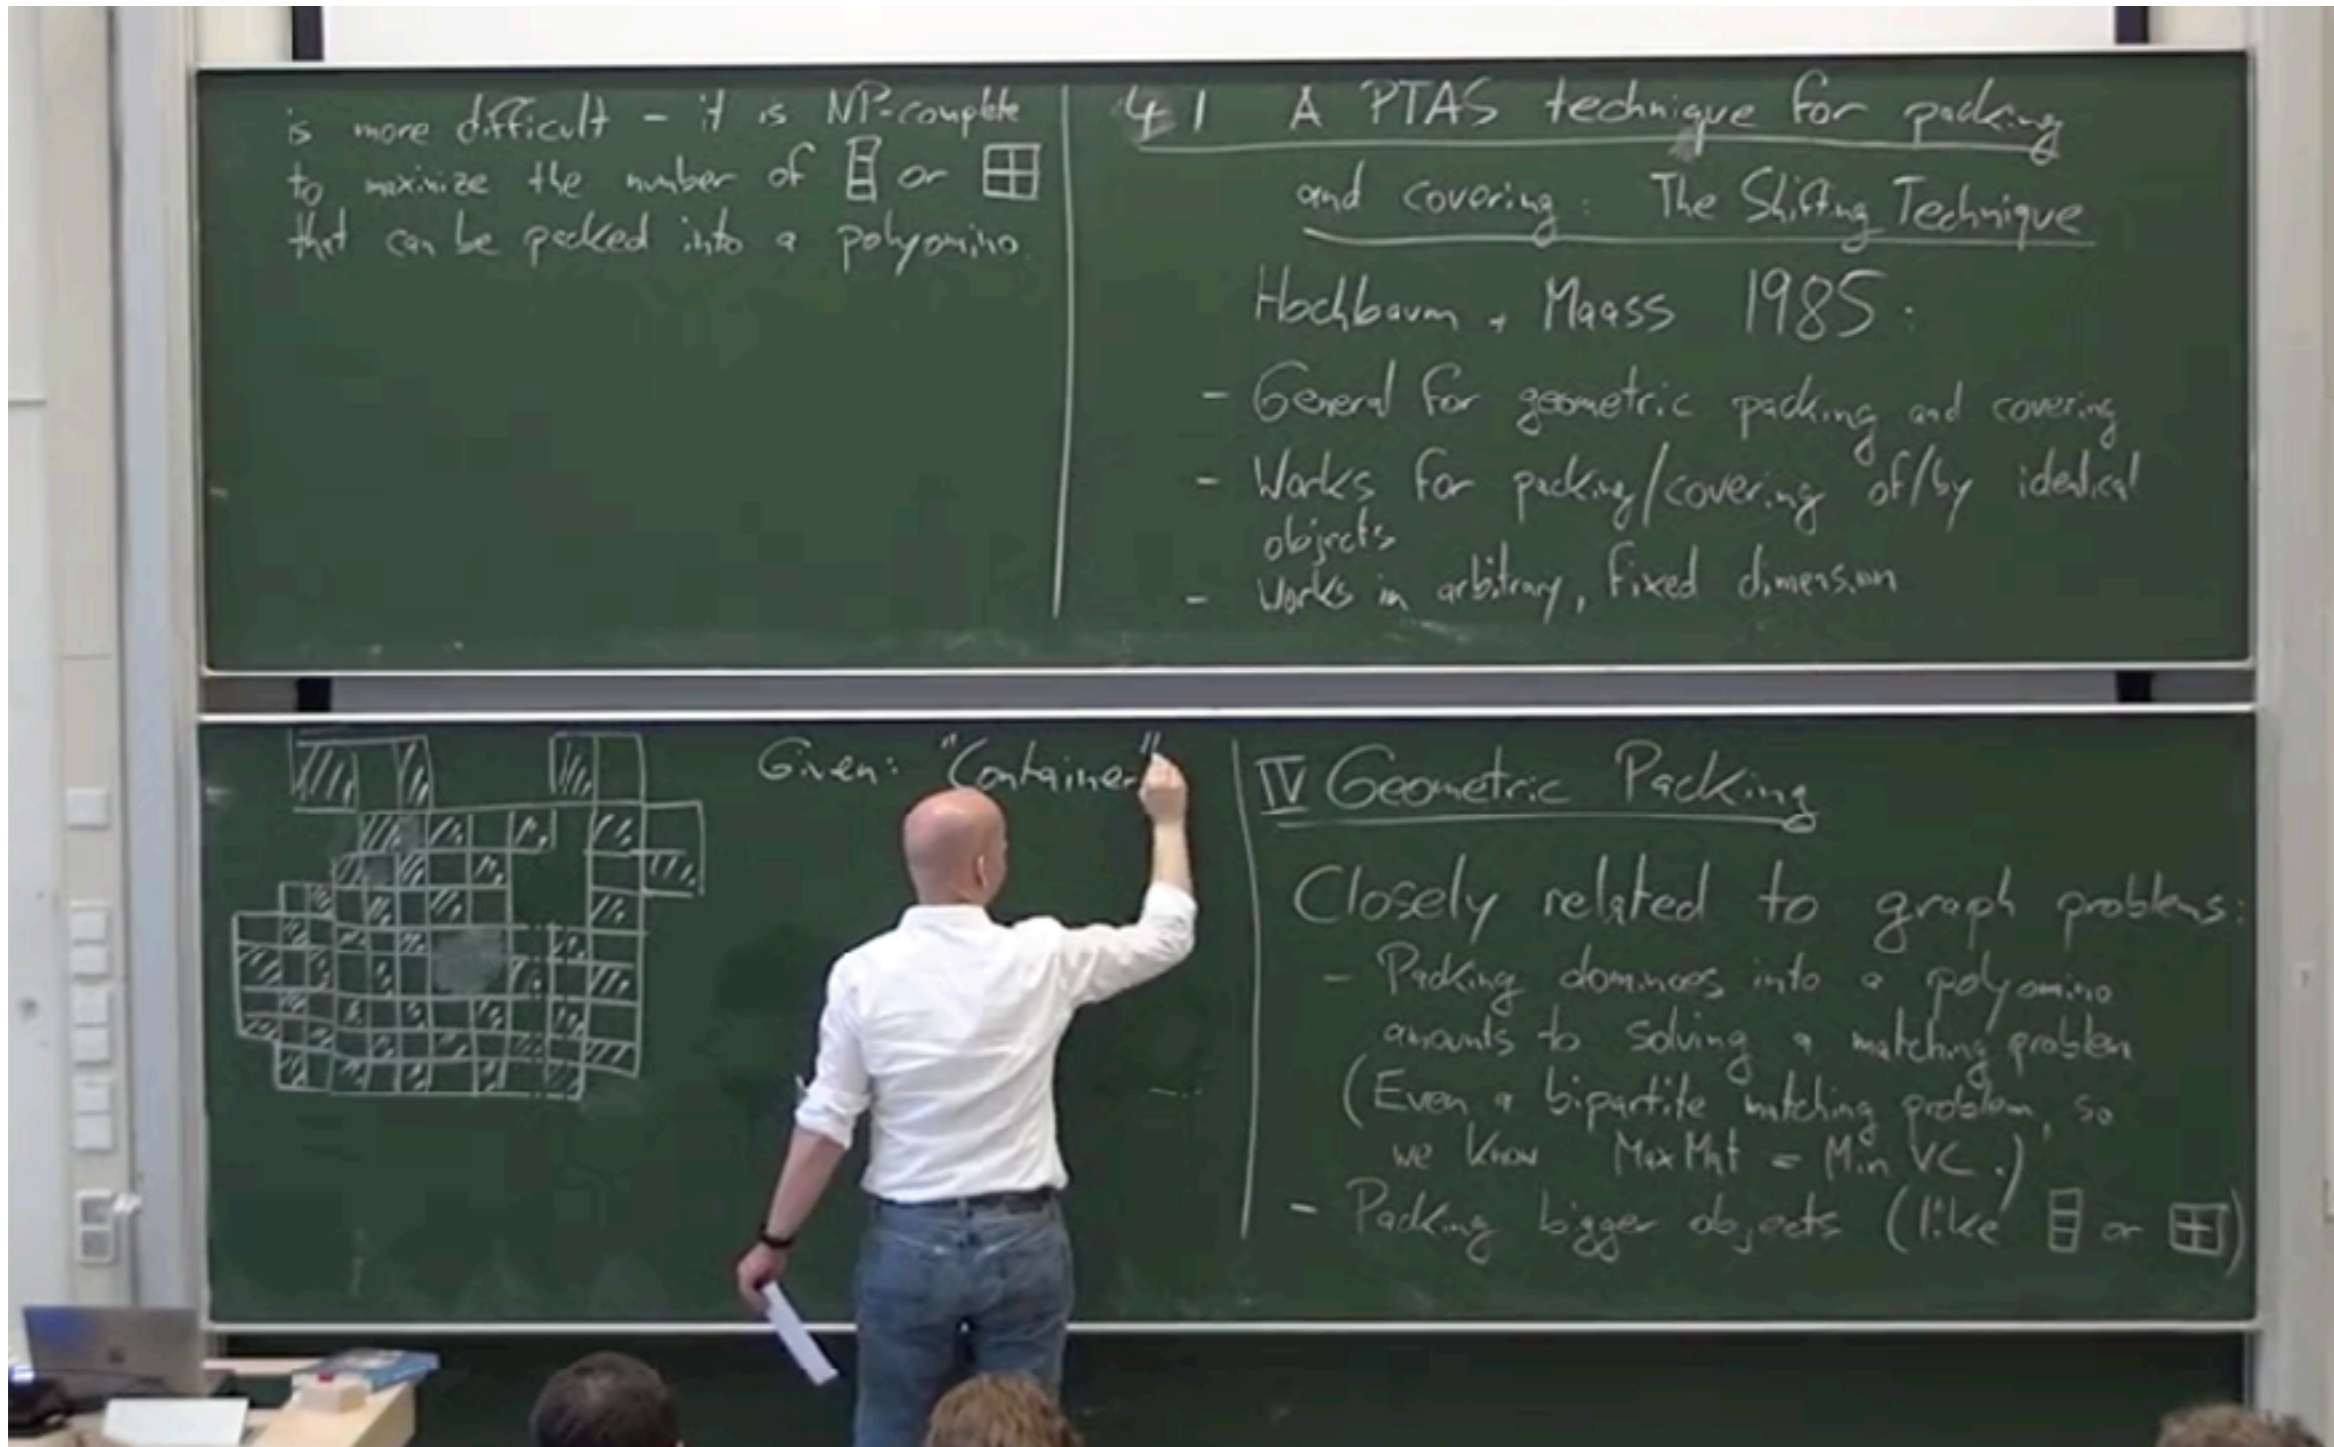 is more difficult - it is NP-complete
to maximize the number of or
that can be packed into a polyomino.
4.1 A PTAS technique for packing
and covering: The Shifting Technique
Hochbaum + Maass 1985:
- General for geometric packing and covering
- Works for packing/covering of/by identical
objects
- Works in arbitrary, fixed dimension
Given: "Container"
IV Geometric Packing
Closely related to graph problems:
- Packing dominoes into a polyomino
amounts to solving a matching problem
(Even a bipartite matching problem, so
we know Max Mat = Min VC.)
- Packing bigger objects (like or )